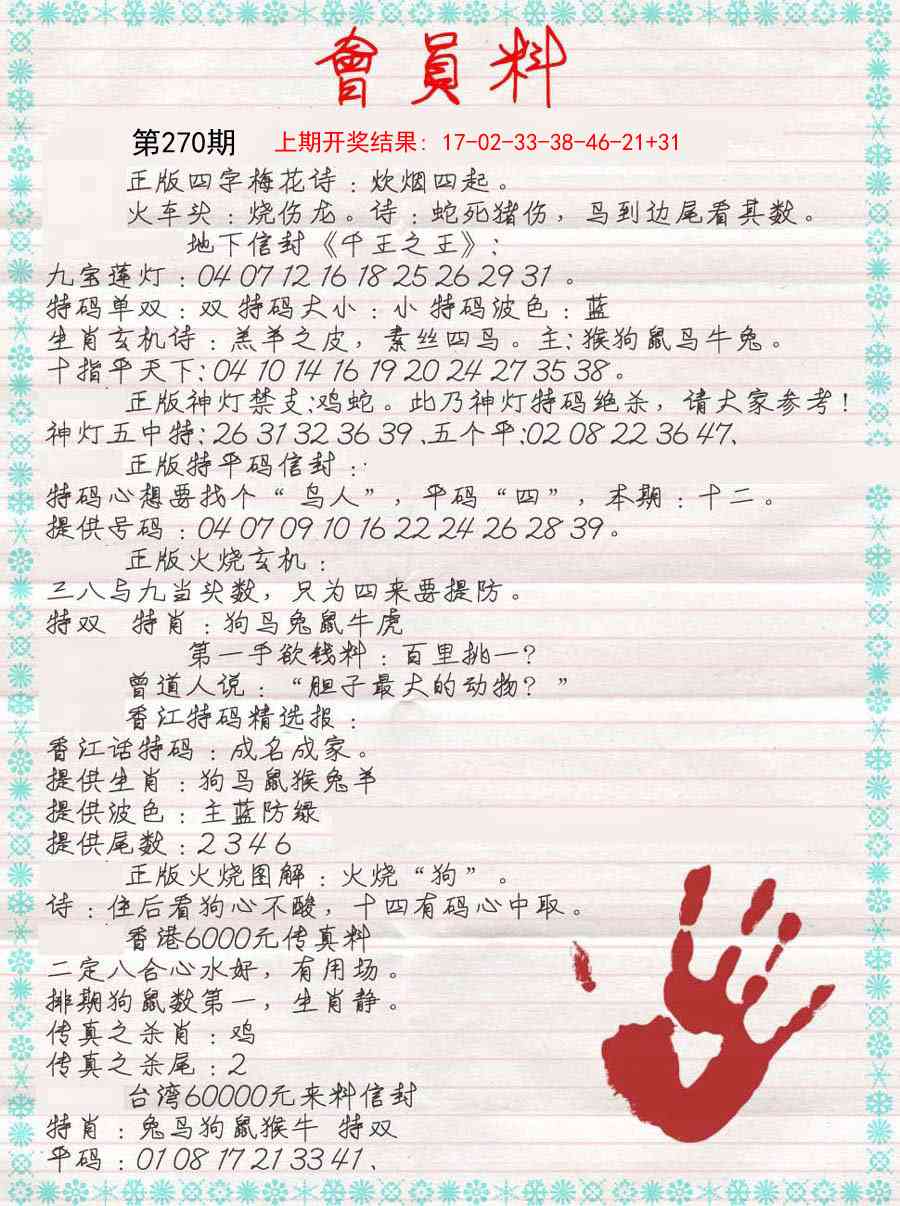 會員料
第270期 上期开奖结果：17-02-33-38-46-21+31
正版四字梅花诗：炊烟四起。
火车头：烧伤龙。诗：蛇死猪伤，马到边尾看其数。
地下信封《千王之王》：
九宝莲灯：04 07 12 16 18 25 26 29 31 。
特码单双：双 特码大小：小 特码波色：蓝
生肖玄机诗：羔羊之皮，素丝四马。主：猴狗鼠马牛兔。
十指平天下：04 10 14 16 19 20 24 27 35 38 。
正版神灯禁支：鸡蛇。此乃神灯特码绝杀，请大家参考！
神灯五中特：26 31 32 36 39 、五个平：02 08 22 36 47、
正版特平码信封：：
特码心想要找个“鸟人”，平码“四”，本期：十二。
提供号码：04 07 09 10 16 22 24 26 28 39 。
正版火烧玄机：
三八与九当头数，只为四来要提防。
特双 特肖：狗马兔鼠牛虎
第一手欲钱料：百里挑一？
曾道人说：“胆子最大的动物？”
香江特码精选报：
香江话特码：成名成家。
提供生肖：狗马鼠猴兔羊
提供波色：主蓝防绿
提供尾数：2 3 4 6
正版火烧图解：火烧“狗”。
诗：住后看狗心不酸，十四有码心中取。
香港6000元传真料
二定八合心水好，有用场。
排期狗鼠数第一，生肖静。
传真之杀肖：鸡
传真之杀尾：2
台湾60000元来料信封
特肖：兔马狗鼠猴牛 特双
平码：01 08 17 21 33 41 、